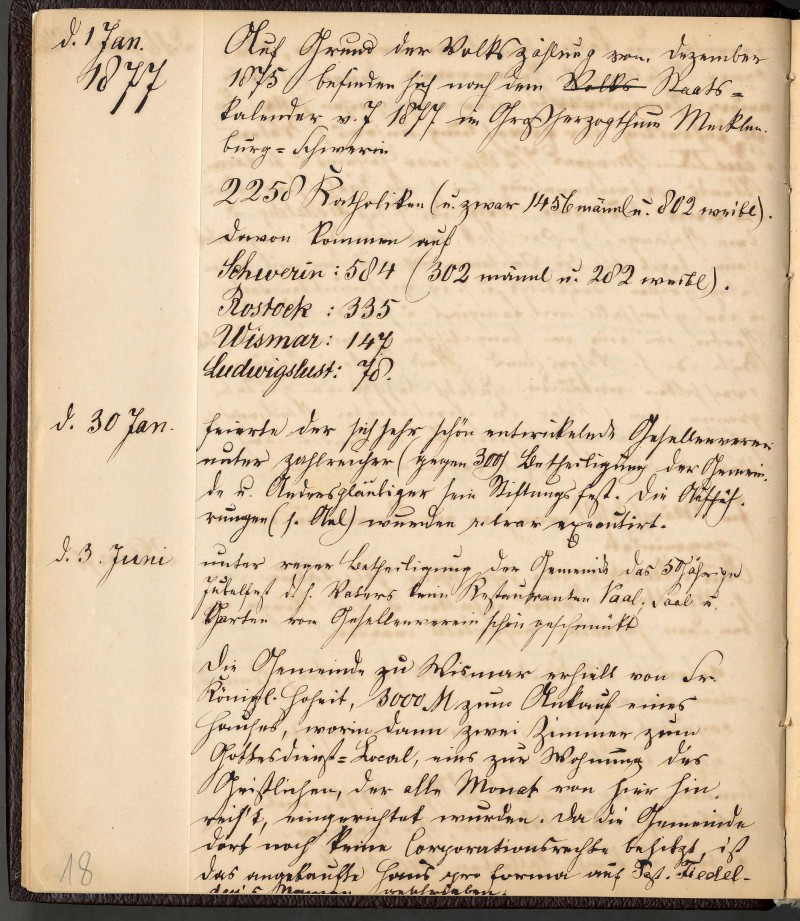 d. 1 Jan.
1877
Auf Grund der Volkszählung vom Dezember
1875 befinden sich nach dem Volks Staats=
kalender v. J 1877 im Großherzogthum Mecklen-
burg=Schwerin
2258 Katholiken (u. zwar 1456 männl u. 802 weibl).
davon kommen auf
Schwerin: 584 (302 männl u. 282 weibl).
Rostock : 335
Wismar: 147
Ludwigslust: 78.
d. 30 Jan.
feierte der sich sehr schön entwickelnde Gesellenverein
unter zahlreicher (gegen 300) Betheiligung der Gemein-
de u. Andersgläubiger sein Stiftungsfest. Die Auffüh-
rungen (s. Anl) wurden executirt.
d. 3. Juni
unter reger Betheiligung der Gemeinde das 50jährige
Jubelfest d. h. Vaters beim Restauranten Paal, Saal u.
Garten vom Gesellenverein schön geschmückt
Die Gemeinde zu Wismar erhielt von Sr.
Königl. Hoheit, 3000 M zum Ankauf eines
Hauses, worin dann zwei Zimmer zum
Gottesdienst=Local, eins zur Wohnung des
Geistlichen, der alle Monat von hier hin-
reis't, eingerichtet wurden. Da die Gemeinde
dort noch keine Corporationsrechte besitzt, ist
das angekaufte Haus pro forma auf Past. Fiedel-
dei's Namen geschrieben.
18